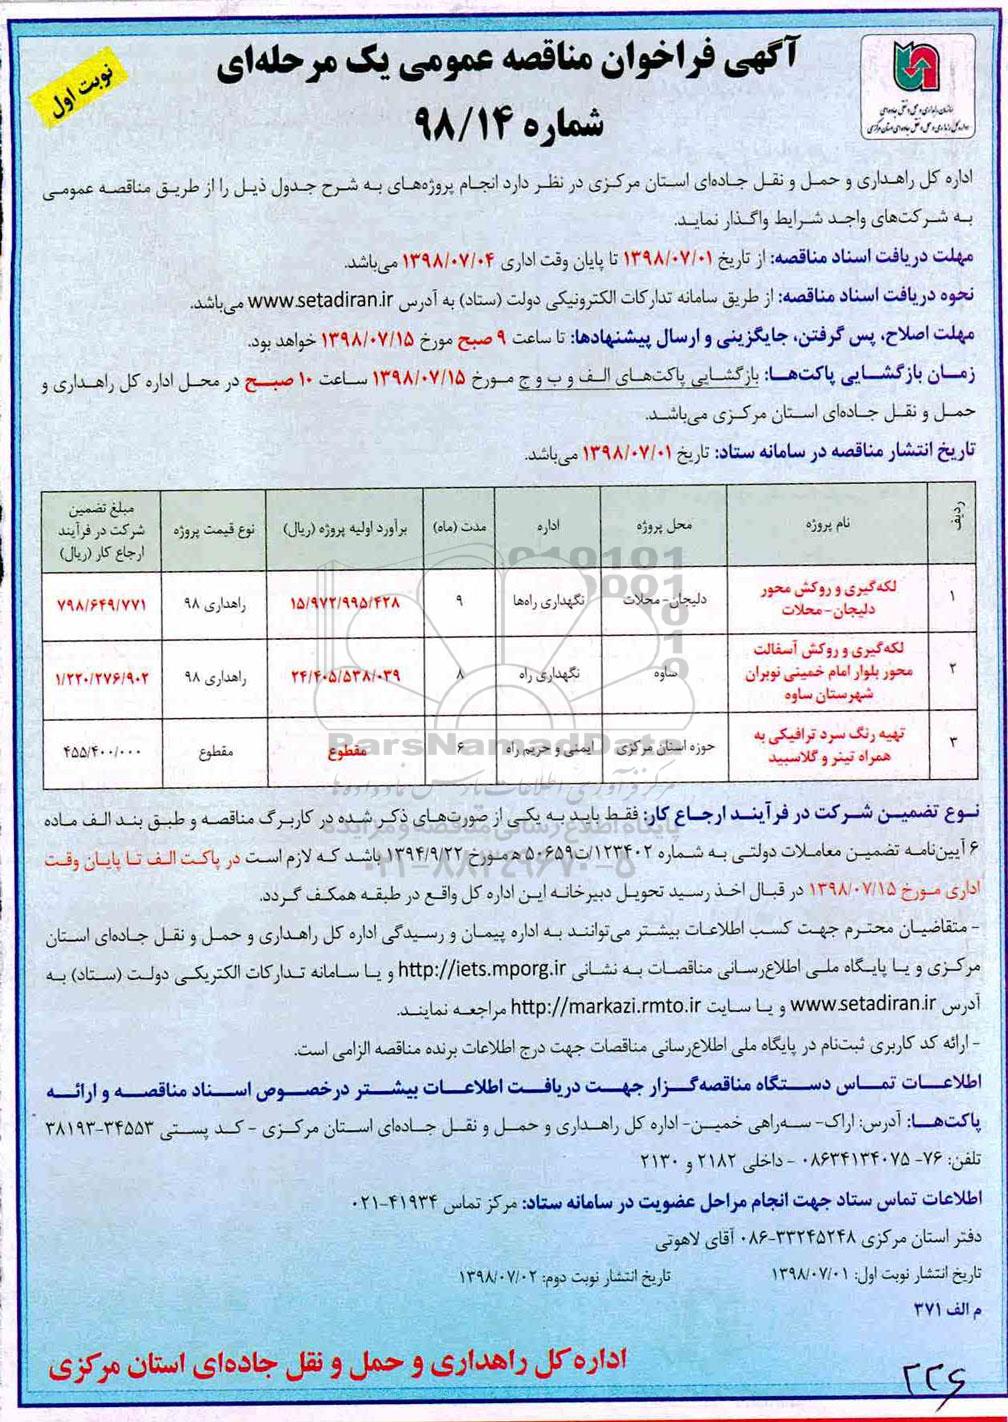 آگهی فراخوان مناقصه عمومی یک مرحله‌ای
شماره ۹۸/۱۴
نوبت اول
اداره کل راهداری و حمل و نقل جاده‌ای استان مرکزی در نظر دارد انجام پروژه‌های به شرح جدول ذیل را از طریق مناقصه عمومی
به شرکت‌های واجد شرایط واگذار نماید.
مهلت دریافت اسناد مناقصه: از تاریخ ۱۳۹۸/۰۷/۰۱ تا پایان وقت اداری ۱۳۹۸/۰۷/۰۴ می‌باشد.
نحوه دریافت اسناد مناقصه: از طریق سامانه تدارکات الکترونیکی دولت (ستاد) به آدرس www.setadiran.ir می‌باشد.
مهلت اصلاح، پس گرفتن، جایگزینی و ارسال پیشنهادها: تا ساعت ۹ صبح مورخ ۱۳۹۸/۰۷/۱۵ خواهد بود.
زمان بازگشایی پاکت‌ها: بازگشایی پاکت‌های الف و ب و ج مورخ ۱۳۹۸/۰۷/۱۵ ساعت ۱۰ صبح در محل اداره کل راهداری و
حمل و نقل جاده‌ای استان مرکزی می‌باشد.
تاریخ انتشار مناقصه در سامانه ستاد: تاریخ ۱۳۹۸/۰۷/۰۱ می‌باشد.
ردیف نام پروژه محل پروژه اداره مدت (ماه) برآورد اولیه پروژه (ریال) نوع قیمت پروژه مبلغ تضمین شرکت در فرآیند ارجاع کار (ریال)
۱ لکه‌گیری و روکش محور دلیجان-محلات دلیجان-محلات نگهداری راه‌ها ۹ ۱۵/۹۷۲/۹۹۵/۴۲۸ راهداری ۹۸ ۷۹۸/۶۴۹/۷۷۱
۲ لکه‌گیری و روکش آسفالت محور بلوار امام خمینی نوبران شهرستان ساوه ساوه نگهداری راه ۸ ۲۴/۴۰۵/۵۳۸/۰۳۹ راهداری ۹۸ ۱/۲۲۰/۲۷۶/۹۰۲
۳ تهیه رنگ سرد ترافیکی به همراه تینر و گلاسبید حوزه استان مرکزی ایمنی و حریم راه ۶ مقطوع مقطوع ۴۵۵/۴۰۰/۰۰۰
ParsNamadData
پایگاه اطلاع رسانی مناقصه و مزایده
۰۲۱-۸۸۳۴۹۶۷۰-۵
نوع تضمین شرکت در فرآیند ارجاع کار: فقط باید به یکی از صورت‌های ذکر شده در کاربرگ مناقصه و طبق بند الف ماده
۶ آیین‌نامه تضمین معاملات دولتی به شماره ۱۲۳۴۰۲/ت۵۰۶۵۹ه مورخ ۱۳۹۴/۹/۲۲ باشد که لازم است در پاکت الف تا پایان وقت
اداری مورخ ۱۳۹۸/۰۷/۱۵ در قبال اخذ رسید تحویل دبیرخانه این اداره کل واقع در طبقه همکف گردد.
- متقاضیان محترم جهت کسب اطلاعات بیشتر می‌توانند به اداره پیمان و رسیدگی اداره کل راهداری و حمل و نقل جاده‌ای استان
مرکزی و یا پایگاه ملی اطلاع‌رسانی مناقصات به نشانی http://iets.mporg.ir و یا سامانه تدارکات الکتریکی دولت (ستاد) به
آدرس www.setadiran.ir و یا سایت http://markazi.rmto.ir مراجعه نمایند.
- ارائه کد کاربری ثبت‌نام در پایگاه ملی اطلاع‌رسانی مناقصات جهت درج اطلاعات برنده مناقصه الزامی است.
اطلاعات تماس دستگاه مناقصه‌گزار جهت دریافت اطلاعات بیشتر درخصوص اسناد مناقصه و ارائه
پاکت‌ها: آدرس: اراک- سه‌راهی خمین- اداره کل راهداری و حمل و نقل جاده‌ای استان مرکزی - کد پستی ۳۴۵۵۳-۳۸۱۹۳
تلفن: ۷۶- ۰۸۶۳۴۱۳۴۰۷۵ - داخلی ۲۱۸۲ و ۲۱۳۰
اطلاعات تماس ستاد جهت انجام مراحل عضویت در سامانه ستاد: مرکز تماس ۴۱۹۳۴-۰۲۱
دفتر استان مرکزی ۳۳۲۴۵۲۴۸-۰۸۶ آقای لاهوتی
تاریخ انتشار نوبت اول: ۱۳۹۸/۰۷/۰۱ تاریخ انتشار نوبت دوم: ۱۳۹۸/۰۷/۰۲
م الف ۳۷۱
اداره کل راهداری و حمل و نقل جاده‌ای استان مرکزی
۲۲۶